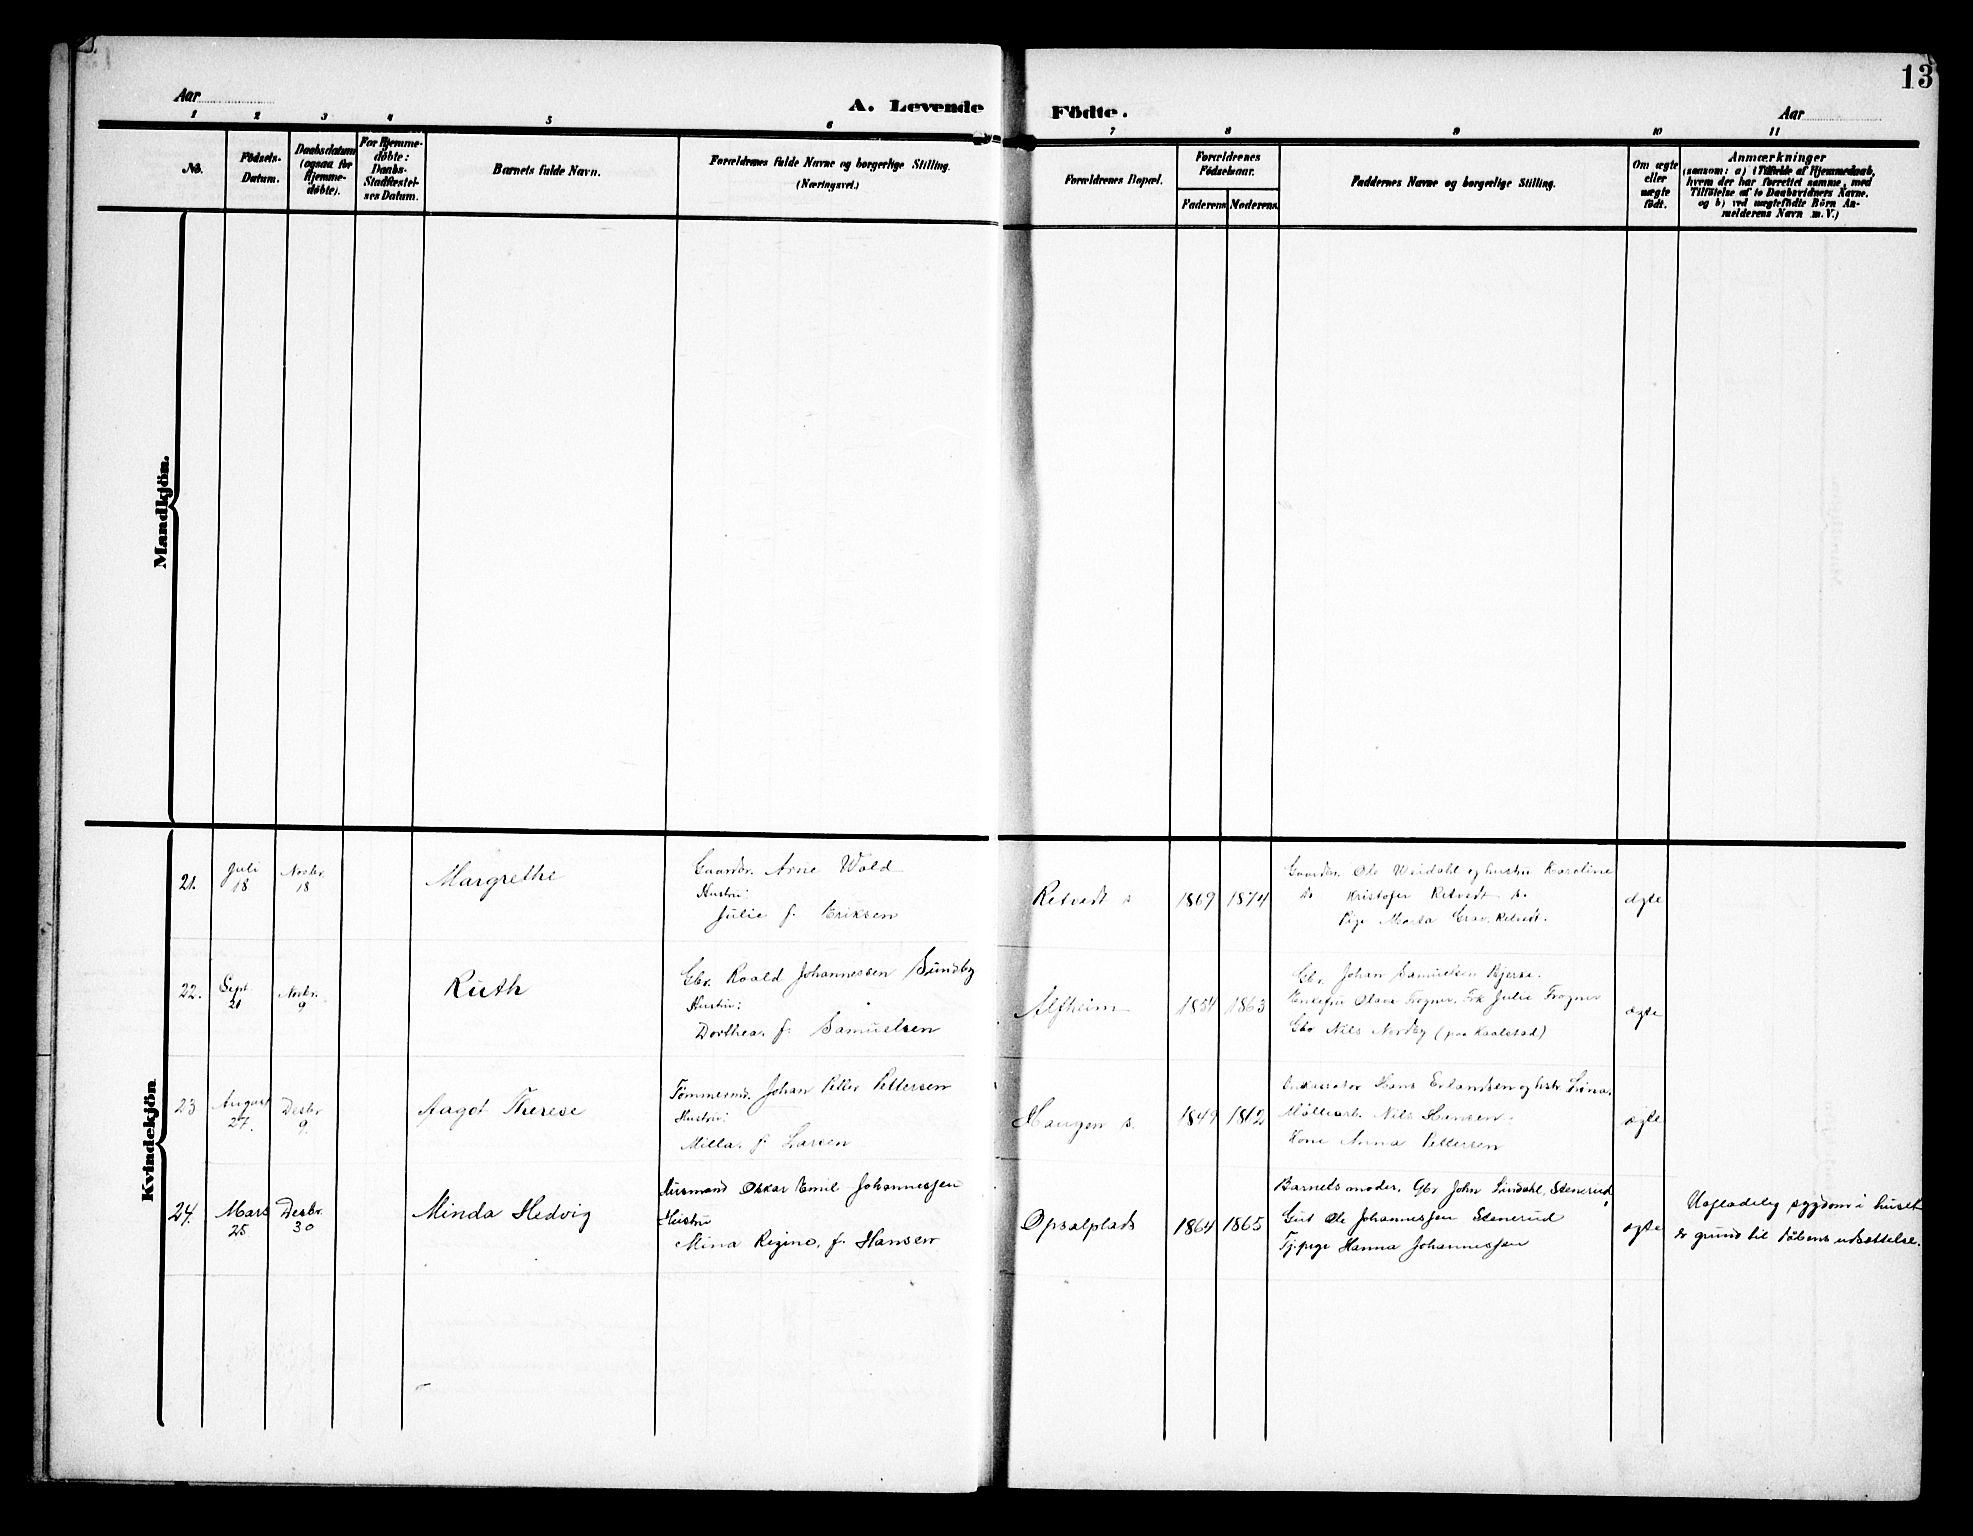 13
Aar
A. Levende Födte.
Aar
1 2 3 4 5 6 7 8 9 10 11
No.
Födsels-
Datum.
Daabsdatum
(ogsaa for
Hjemme-
døbte).
For Hjemme-
døbte:
Daabs-
Stadfæstel-
ses Datum.
Barnets fulde Navn.
Forældrenes fulde Navne og borgerlige Stilling.
(Næringsvei.)
Forældrenes Bopæl.
Forældrenes
Födselsaar.
Faderens Moderens
Faddernes Navne og borgerlige Stilling.
Om ægte
eller
uægte
født.
Anmærkninger
(saasom: a) i Tilfælde af Hjemmedaab,
hvem der har forrettet samme, med
Tilföielse af to Daabsvidners Navne.
og b) ved uægtefödte Börn An-
melderens Navn m. V.)
Mandkjön.
Kvindekjön.
21.
Juli
18
Novbr.
18
Margrethe
Gaardbr. Arne Wold
Hustru:
Julie f. Eriksen
Retvedt s
1869 1874
Gaardbr. Ole Weidahl og hustru Karoline
Do Kristofer Retvedt s.
Pige Marta Grav, Retvedt.
ægte
22.
Sept
21
Novbr.
9
Ruth
Gbr. Roald Johannessen Sundby
Hustru:
Dorthea f. Samuelsen
Alfheim
1854 1863
Gbr. Johan Samuelsen Bjerke.
Enkefru Olava Frogner, Frk Julie Frogner
Gbr Nils Nordby (paa Kaalstad)
ægte
23
August
27.
Desbr
9
Aagot Therese
Tömmermd. Johan Petter Pettersen
Hustru:
Milla. f. Larsen
Haugen s.
1849 1862
Hans Erlandsen og hstr Lina.
Möllearb. Nils Hansen.
Kone Anna Pettersen
ægte
24.
Mars
25
Desbr
30
Minda Hedvig
Husmand Oskar Emil Johannessen
Hustru
Mina Regine, f. Hansen
Opsalplads
1864 1865
Barnets moder, Gbr John Lindahl, Stenerud,
Gut Ole Johannessen Stenerud
Tj.pige Hanna Johannessen
ægte
Uafladelig sygdom i huset
er grund til dåbens udsættelse.